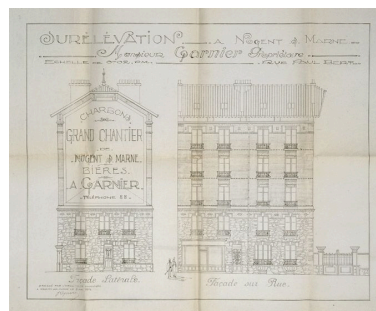 SURÉLÉVATION A NOGENT S/ MARNE
Monsieur Garnier Propriétaire
ECHELLE DE P.M. RUE PAUL BERT
CHARBONS
GRAND CHANTIER
DE
NOGENT S/ MARNE
BIÈRES
A. GARNIER
TÉLÉPHONE
Façade Latérale.
Façade sur Rue.